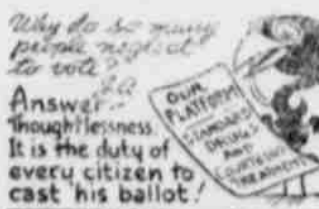 Why do so many
people neglect
to vote?
Answer:
Thoughtlessness.
It is the duty of
every citizen to
cast his ballot!
OUR
PLATFORM
STANDARD
DRUGS
AND
COURTEOUS
TREATMENT